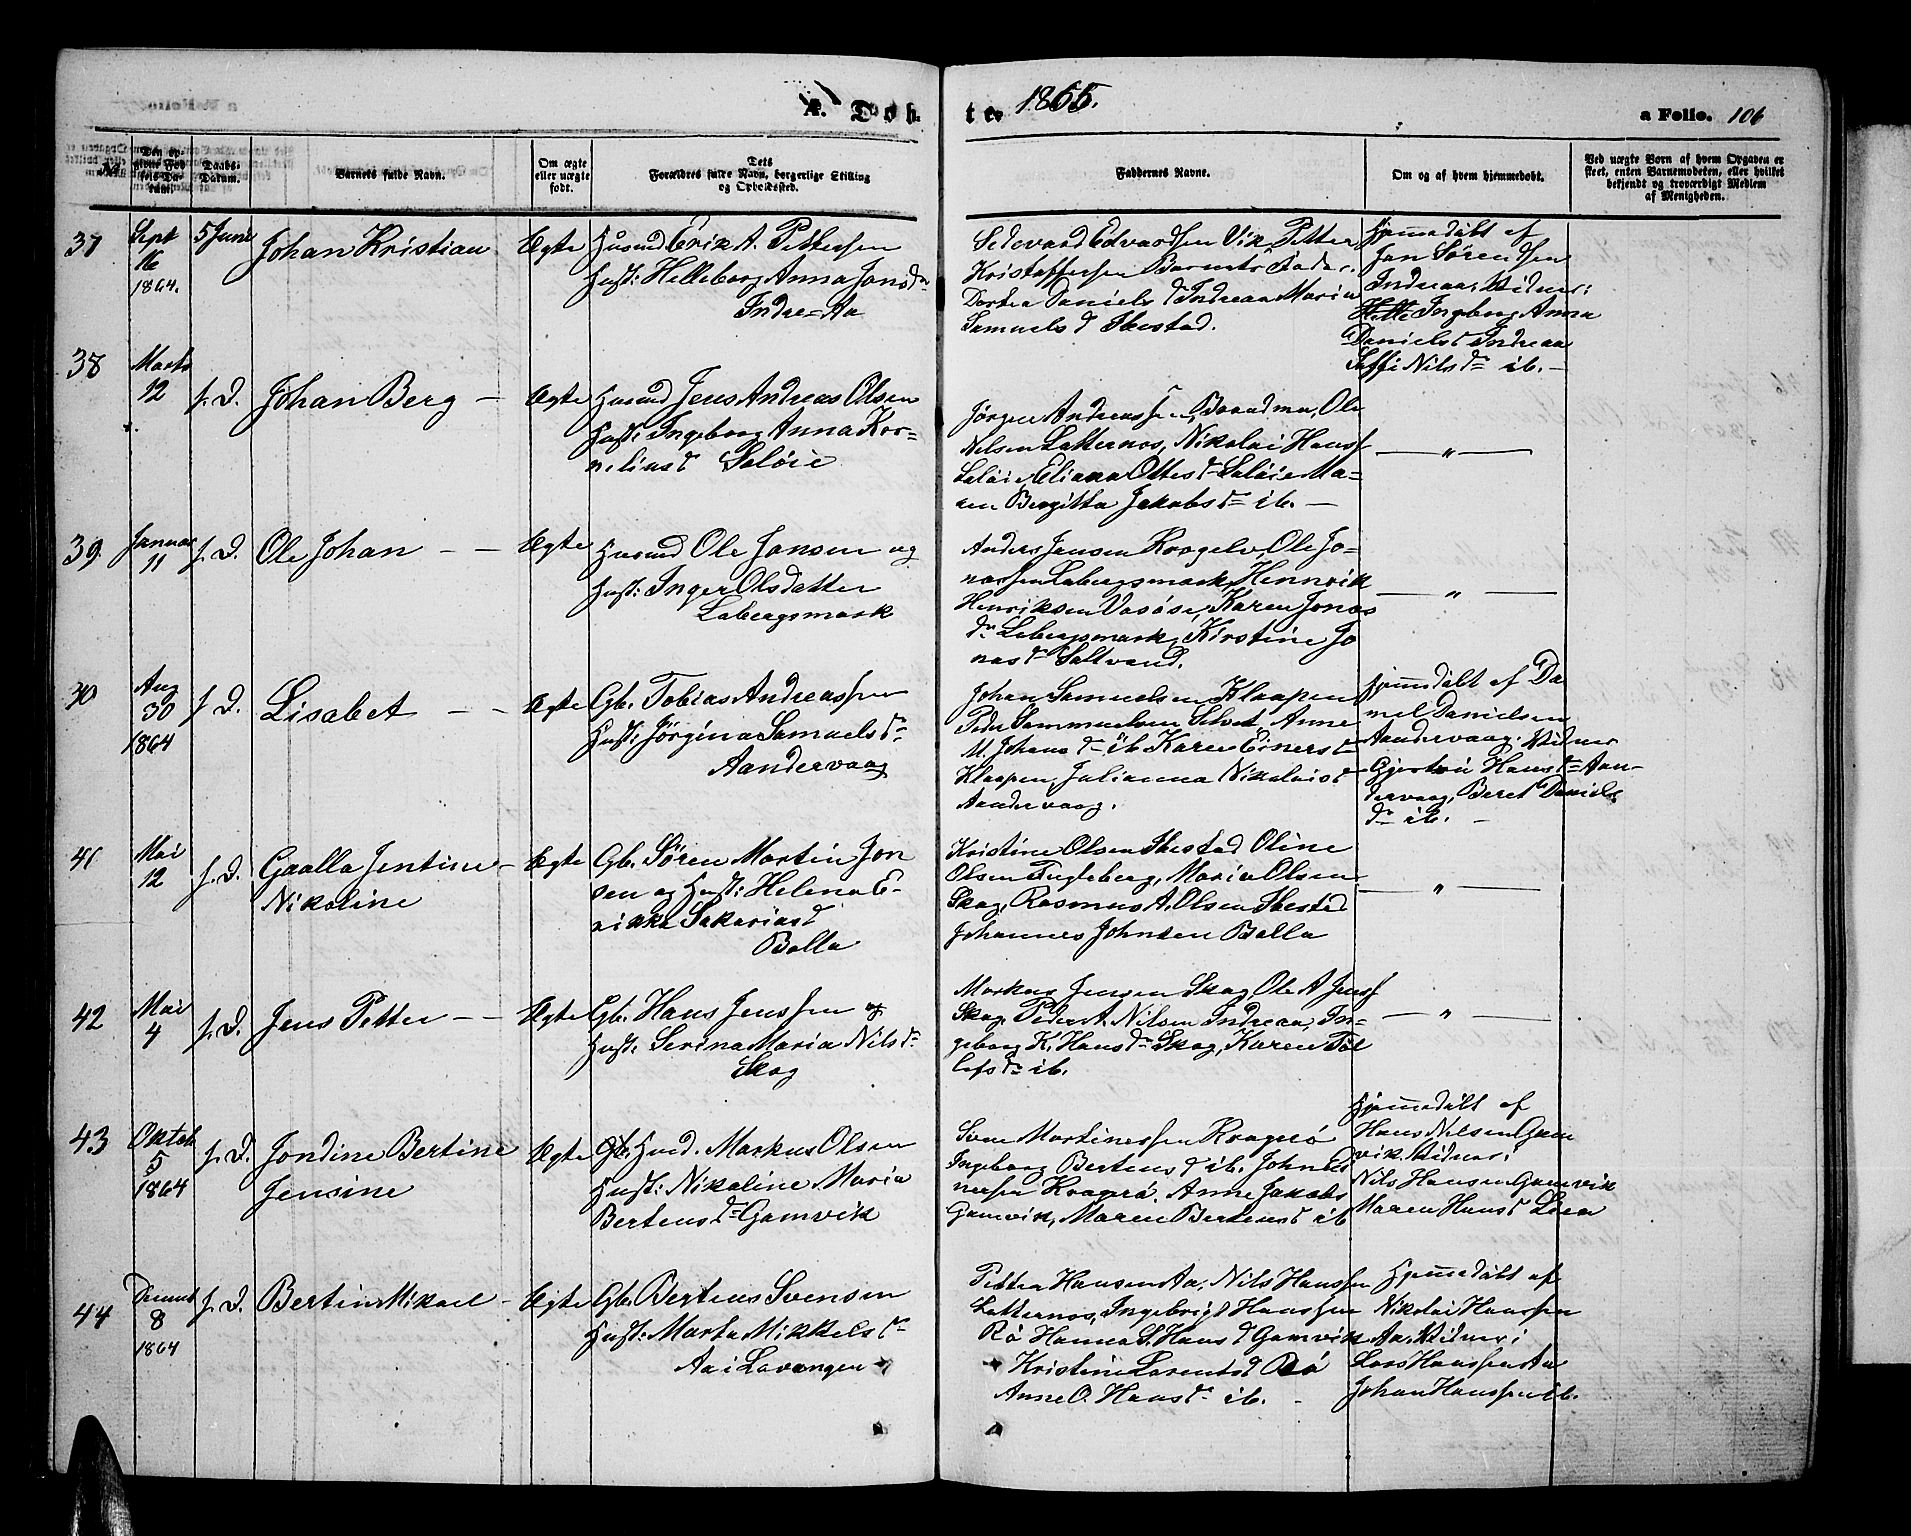 A. Døb-
te 1865.
a Folio. 106
No.
Den op-
givne Fød
sels-Da-
tum.
Daabs-
Datum.
Barnets fulde Navn.
Om ægte
eller uægte
født.
Dets
Forældres fulde Navn, borgerlige Stilling
og Opholdssted.
Faddernes Navne.
Om og af hvem hjemmedøbt.
Ved uægte Born af hvem Opgaven er
skeet, enten Barnemoderen, eller hvilket
bekjendt og troværdigt Medlem
af Menigheden.
37
Sept
16
1864.
5 Juni
Johan Kristian
Ægte
Husmd Erik A. Pettersen
Hust: Helleborg Anna Jonsdr
Indre-Aa
Edvardsen Vik, Petter
Kristoffersen Barnets Fader.
Dortea Daniels d Indreaa Maria
Samuels d Ibestad.
Hjemmedøbt af
Jan Sørensen
Indreaa; Vidner:
Ingborg Anna
Daniels d Indreaa
Nilsdr ib. -
38
Marts
12
s. D.
Johan Berg -
Ægte
Husmd Jens Andreas Olsen
Hust: Ingeborg Anna Kor-
nelius d Søløie
Jørgen Andreassen, Ole
Nilsen Latternes, Nikolai Hanss
Søløi, Eliana Ottes d Søløie Ma-
ren Birgitta Jakobs dr ib. -
— " —
39.
Januar
11
s. D.
Ole Johan - -
Ægte
Husmd Ole Jonsen og
Hust: Inger Olsdatter
Labergsmark
Anders Jensen Krogelv, Ole Jo-
nassen Labergsmark, Hennrik
Henriksen, Karen Jonas
dr Labergsmark, Kirstine Jo
nas dr Saltvand.
— " —
30
Aug
30
1864
s. D.
Lisabet - -
Ægte
Gb. Tobias Andreassen
Hust: Jørgina Samuels dr
Aandervaag
Johan Samuelsen Klaapen
Peder Sammuelsen, Anne
M. Johans dr ib Karen Einers d
Klaapen, Julianna Nikolais d
Aandervaag.
Hjemmedøbt af Da
niel Danielsen
Aandervaag; Vidner
Hans dr Aan-
dervaag, Beret Daniels
dr ib. -
41
Mai
12
s. D.
Gaalla Jentine -
Nikoline
Ægte
Gb. Søren Martin Jon
sen og Hust: Helena E-
rikka Sakarias d
Bolla
Kristine Olsen Ibestad Oline
Olsen Fugleberg, Maria Olsen
Skog, Rasmus A. Olsen Ibestad
Johannes Johnsen Bolla
— " —
42
Mai
4
s. D.
Jens Petter - -
Ægte
Gb. Hans Jenssen og
Hust: Serina Maria Nils dr
Skog
Markus Jensen Skog Ole A Jenss
Skog, Peder A. Nilsen Indreaa, In-
geborg K. Hans dr Skog, Karen Tol
lefs dr ib.
— " —
43
Oktob
5
1864
s. D.
Jondine Bertine
Jensine
Ægte
Husmd. Markus Olsen
Hust: Nikoline Maria
Bertens dr Gamvik
Sven Martinessen Kragerø
Ingeborg Bertens d ib.
Kragerø. Anne Jakobs
Gamvik, Maren Bertens d ib
Hjemmedøbt af
Hans Nilsen Gam
vik. Vidner:
Nils Hansen Gamvik
Maren Hans d
44
Decemb
8
1864
s. D.
Bertin Mikael -
Ægte
Gb. Berteus Svensen
Hust: Marta Mikkels dr
Aa i Lavangen
Petter Hansen Aa, Nils Hanssen
Latternes, Ingebrigt Hanssen
Rø Hanna S. Hans d Gamvik
Kristine Lorents d Rø
Anne O. Hans dr ib. -
Hjemmedøbt af
Nikolai Hanssen
Aa, Vidner:
Lars Hanssen Aa
Johan Hanssen ib.